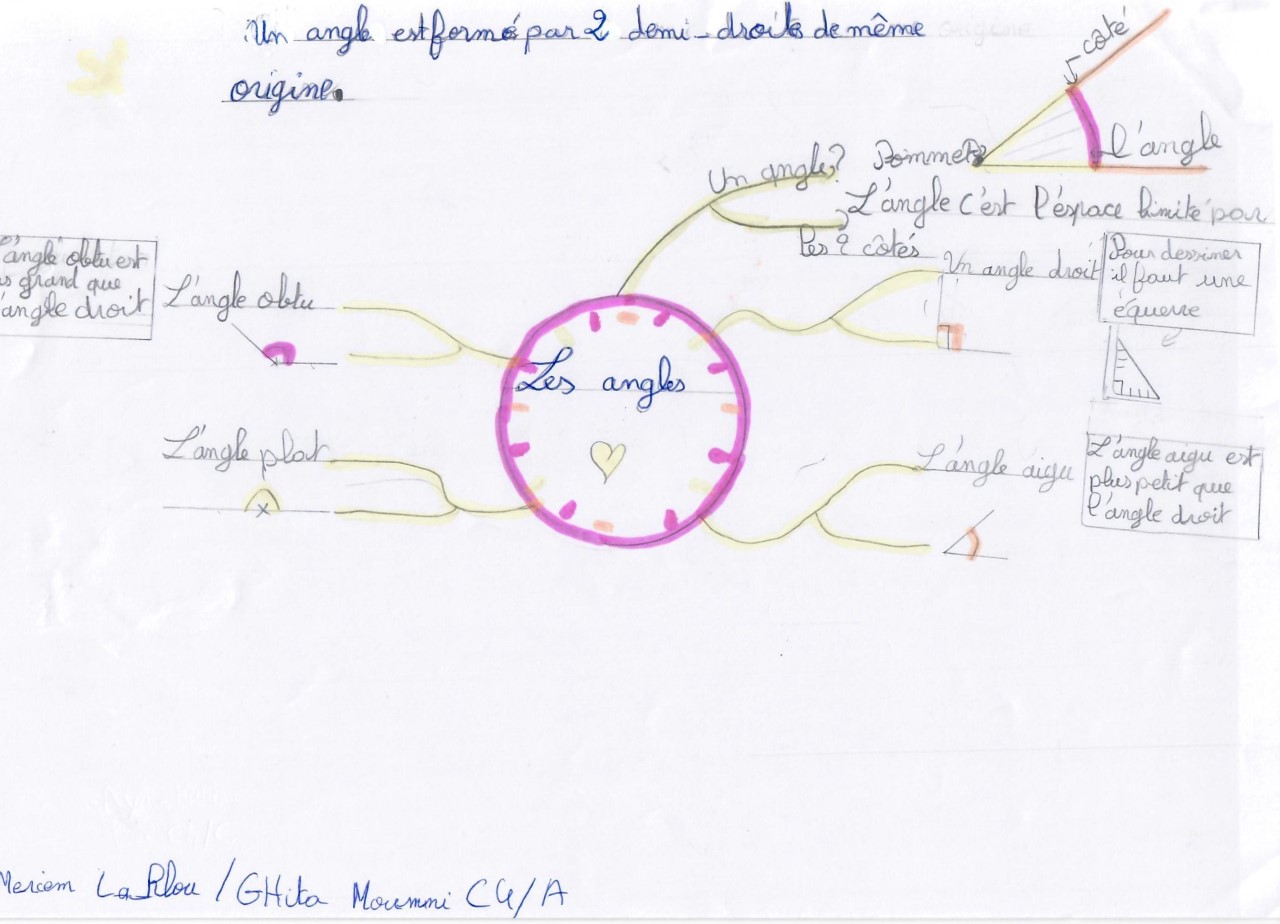 Un angle est formé par 2 demi-droite de même
origine.
côté
l'angle
Sommet
Un angle?
L'angle c'est l'éspace limité par
les 2 côtés
Un angle droit
Pour dessiner
il faut une
équerre
L'angle obtu
l'angle obtu est
s grand que
l'angle droit
Les angles
L'angle plat
L'angle aigu
L'angle aigu est
plus petit que
l'angle droit
Meriem / GHita Moumni CM/A